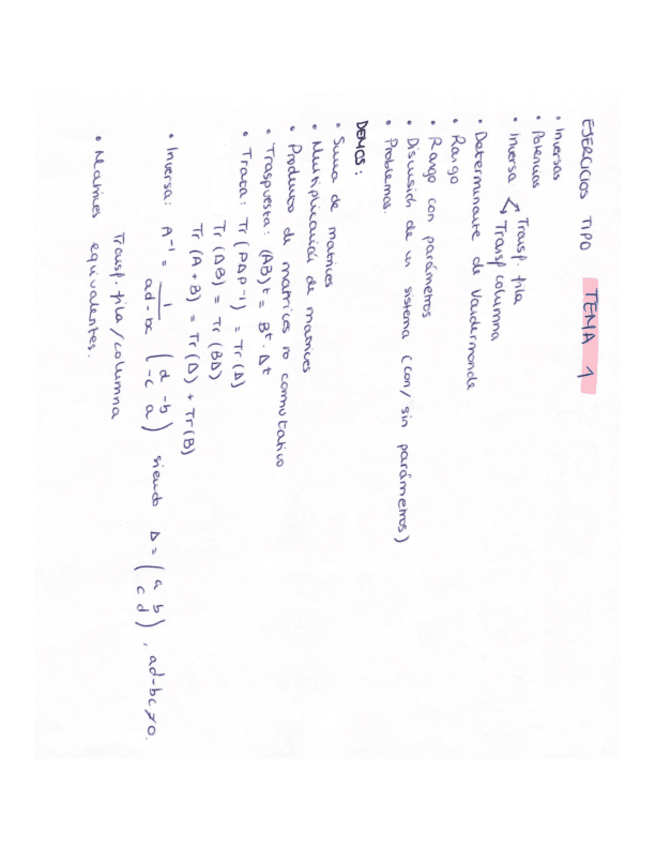 EJERCICIOS TIPO TEMA 1
• Inversas
• Potencias
• Inversa Transf. fila
Transf columna
• Determinante de Vandermonde
• Rango
• Rango con parámetros
• Discusión de un sistema (con/ sin parámetros)
• Problemas.
DEMOS:
• Suma de matrices
• Multiplicación de matrices
• Producto de matrices no conmutativo
• Traspuesta: (AB)t = Bt · At
• Traza: Tr(PAP-1) = Tr(A)
Tr(AB) = Tr(BA)
Tr(A+B) = Tr(A) + Tr(B)
• Inversa: A-1 = 1/ad-bc (d -b
-c a) siendo A = (a b
c d), ad-bc≠0.
Transf. fila/columna
• Matrices equivalentes.